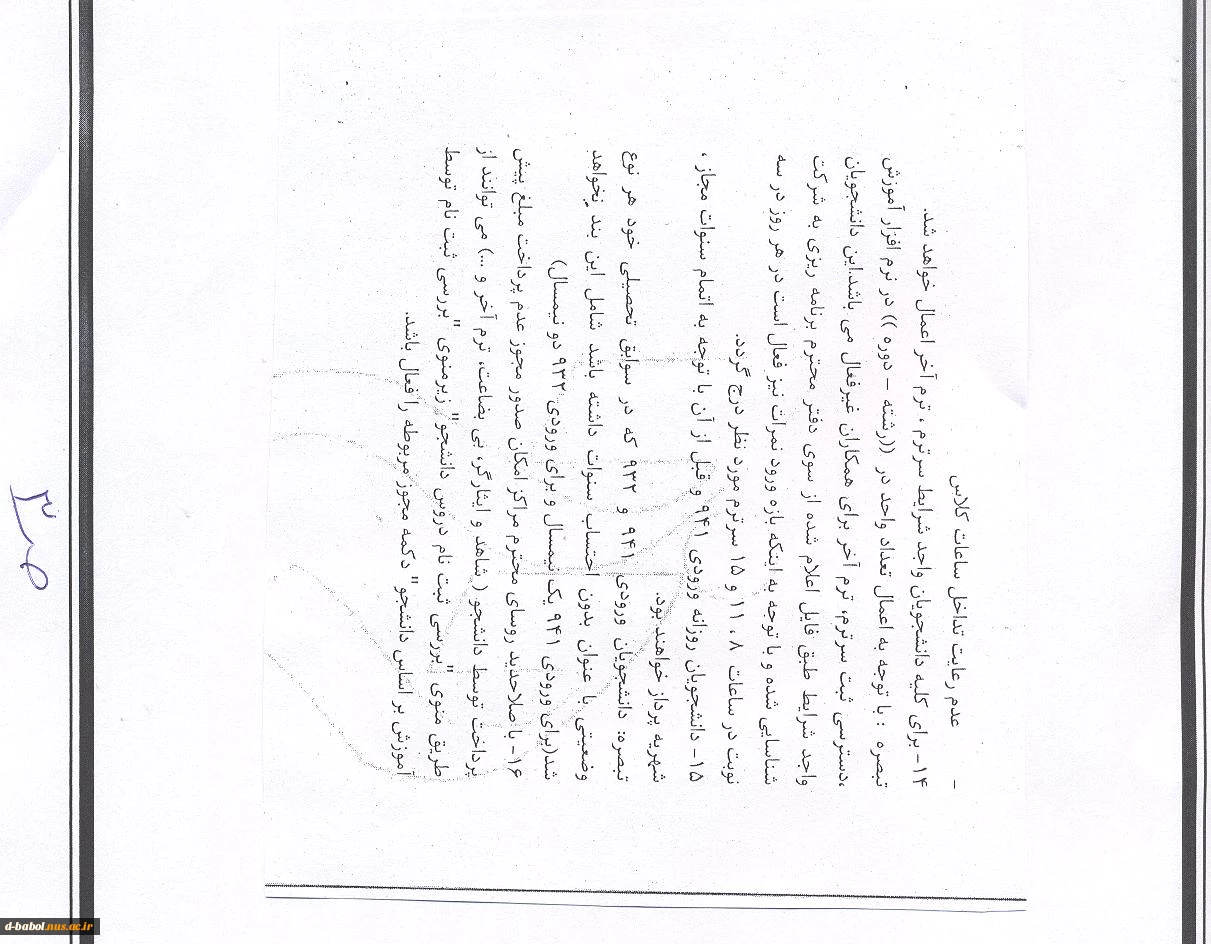 - عدم رعایت تداخل ساعات کلاس
۱۴- برای کلیه دانشجویان واجد شرایط سرترم ، ترم آخر اعمال خواهد شد.
تبصره : با توجه به اعمال تعداد واحد در ((رشته - دوره )) در نرم افزار آموزش
،دسترسی ثبت سرترم، ترم آخر برای همکاران غیرفعال می باشد.این دانشجویان
واجد شرایط طبق فایل اعلام شده از سوی دفتر محترم برنامه ریزی به شرکت
شناسایی شده و با توجه به اینکه بازه ورود نمرات نیز فعال است در هر روز در سه
نوبت در ساعات ۸ ، ۱۱ و ۱۵ سرترم مورد نظر درج گردد.
۱۵- دانشجویان روزانه ورودی ۹۴۱ و قبل از آن با توجه به اتمام سنوات مجاز ،
شهریه پرداز خواهند بود.
تبصره: دانشجویان ورودی ۹۴۱ و ۹۳۲ که در سوابق تحصیلی خود هر نوع
وضعیتی با عنوان بدون احتساب سنوات داشته باشد شامل این بند نخواهد
شد(برای ورودی ۹۴۱ یک نیمسال و برای ورودی ۹۳۲ دو نیمسال)
۱۶- با صلاحدید روسای محترم مراکز امکان صدور مجوز عدم پرداخت مبلغ پیش
پرداخت توسط دانشجو ( شاهد و ایثارگر، بی بضاعت، ترم آخر و ...) می توانند از
طریق منوی "بررسی ثبت نام دروس دانشجو" زیرمنوی "بررسی ثبت نام توسط
آموزش بر اساس دانشجو" دکمه مجوز مربوطه را فعال باشد.
d-babol.nus.ac.ir